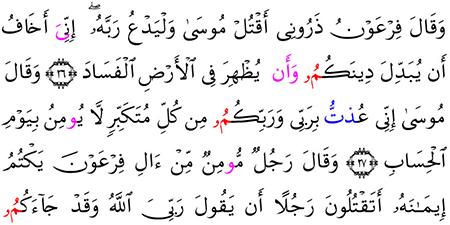 وَقَالَ فِرْعَوْنُ ذَرُونِى أَقْتُلْ مُوسَىٰ وَلْيَدْعُ رَبَّهُۥٓ ۖ إِنِّىَ أَخَافُ
أَن يُبَدِّلَ دِينَكُمُۥ وَأَن يُظْهِرَ فِى ٱلْأَرْضِ ٱلْفَسَادَ ٢٦ وَقَالَ
مُوسَىٰ إِنِّى عُذتُّ بِرَبِّى وَرَبِّكُمُۥ مِن كُلِّ مُتَكَبِّرٍ لَّا يُومِنُ بِيَوْمِ
ٱلْحِسَابِ ٢٧ وَقَالَ رَجُلٌ مُّومِنٌ مِّنْ ءَالِ فِرْعَوْنَ يَكْتُمُ
إِيمَـٰنَهُۥ أَتَقْتُلُونَ رَجُلًا أَن يَقُولَ رَبِّىَ ٱللَّهُ وَقَدْ جَآءَكُمُۥ